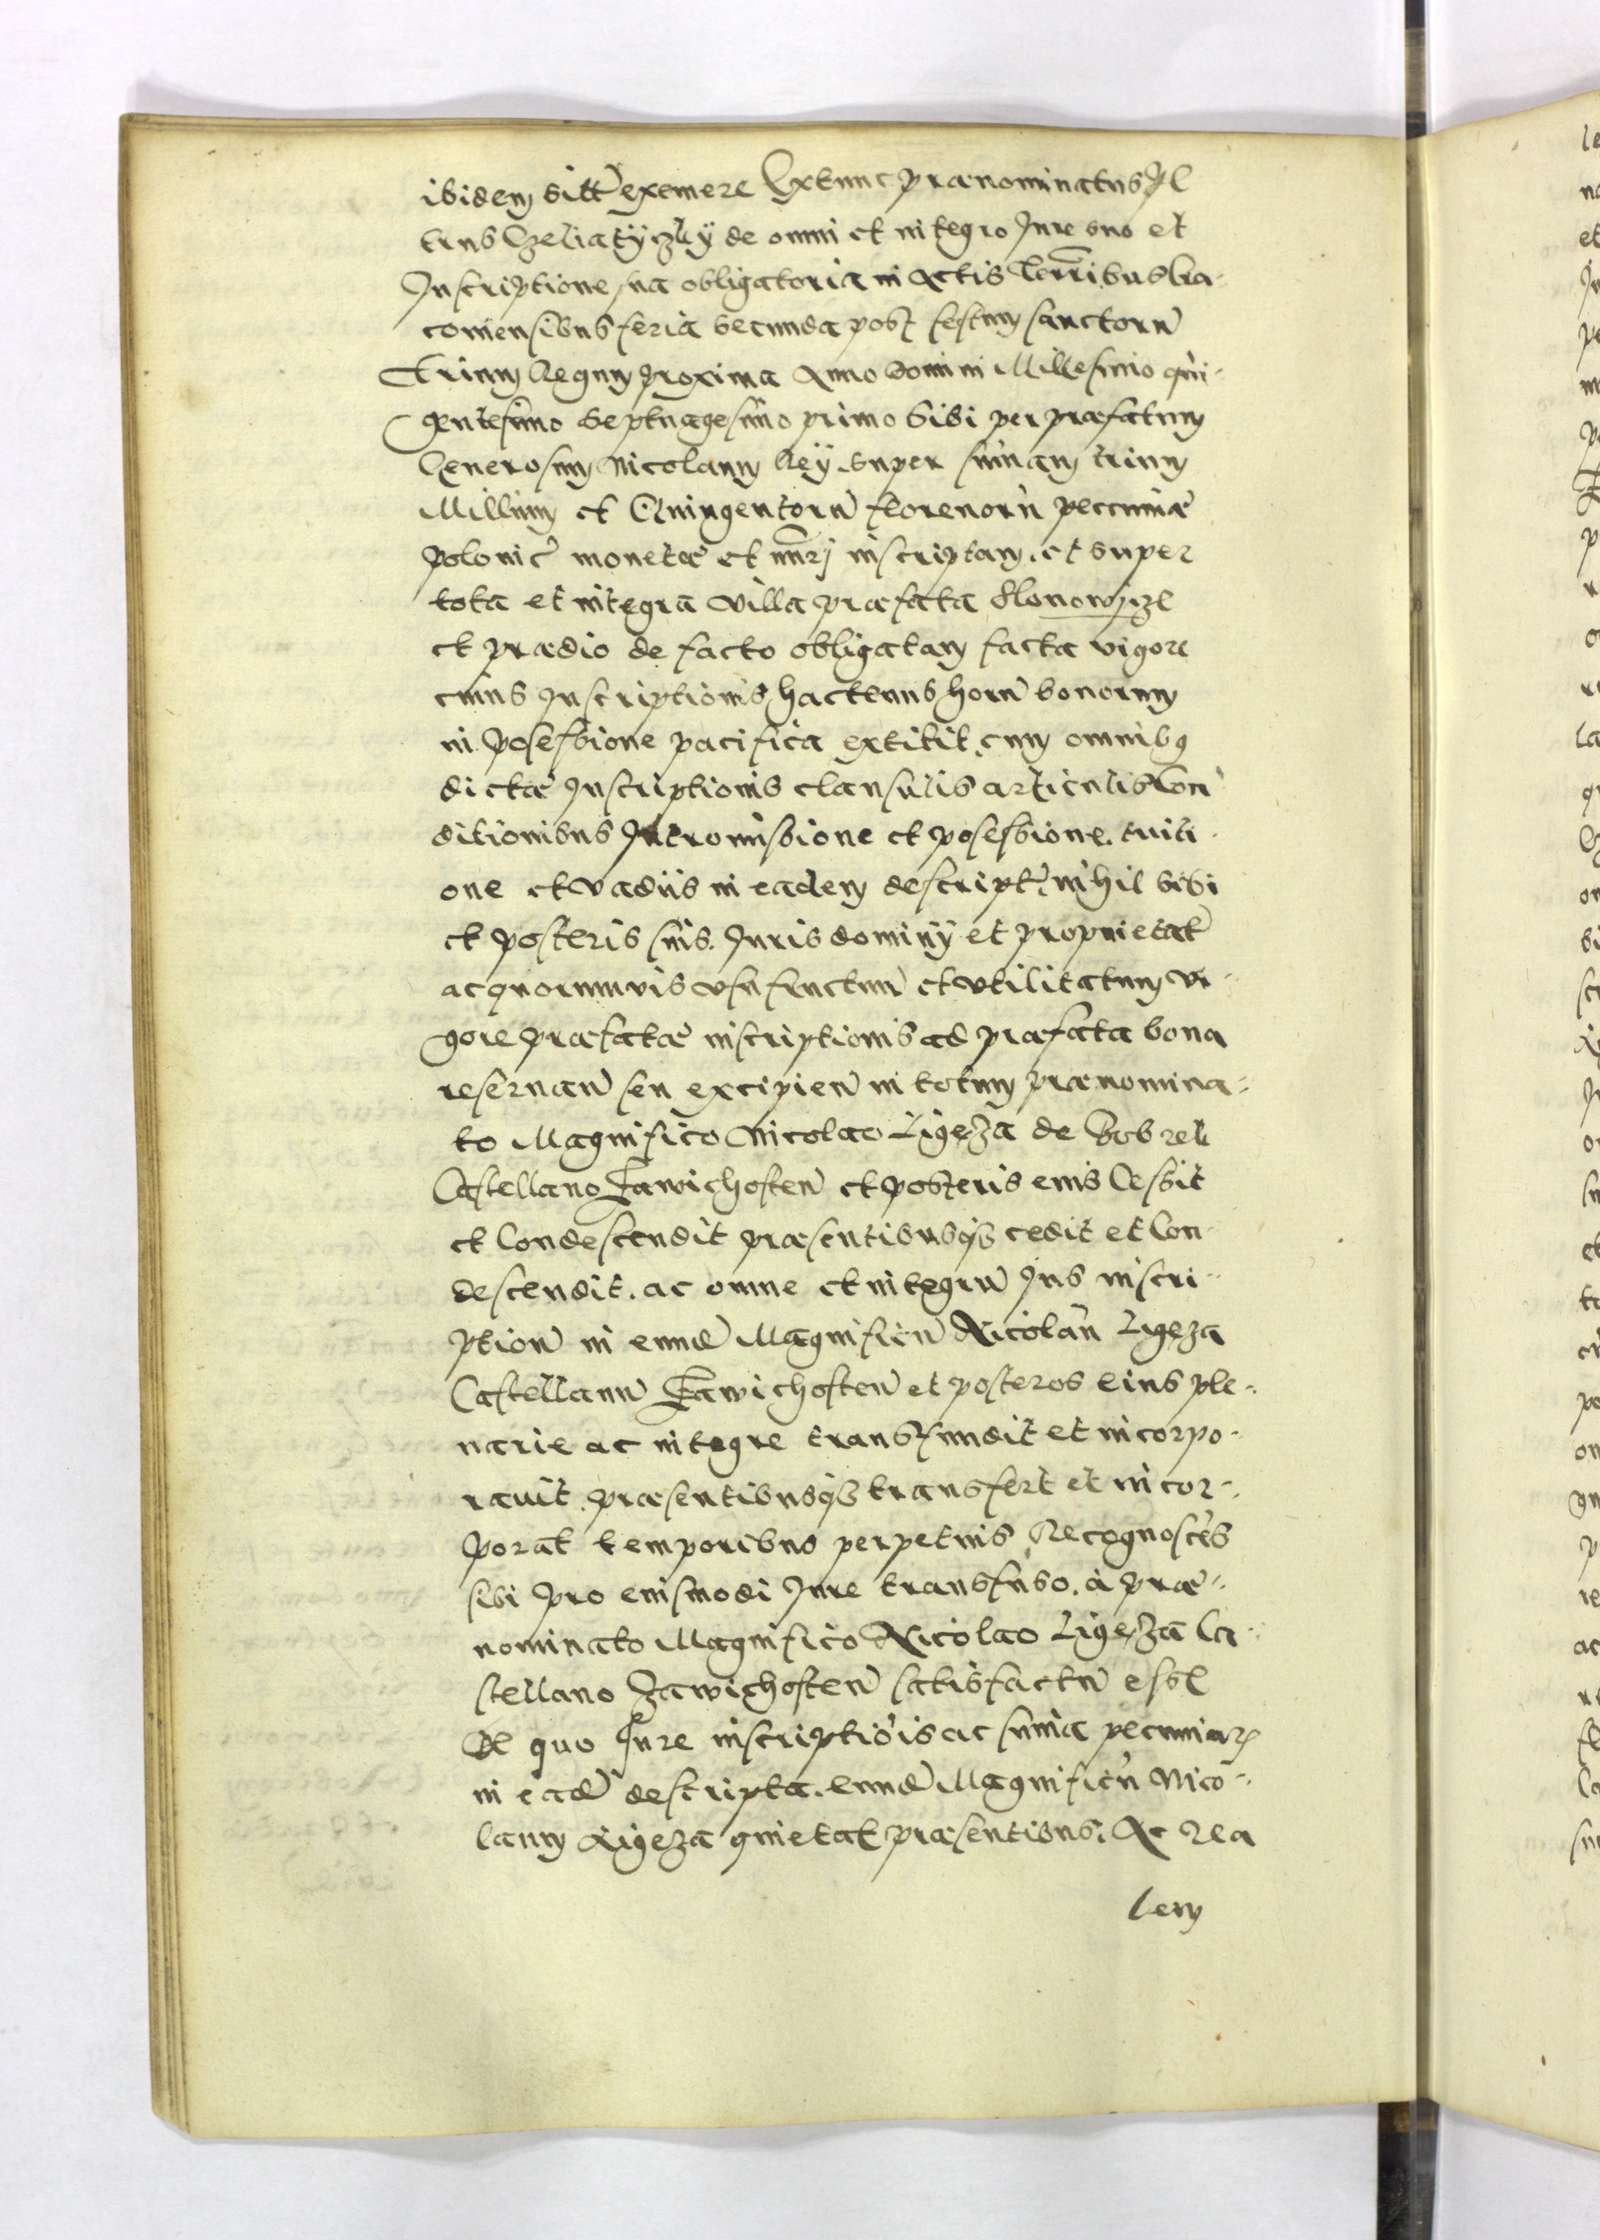 ibidem sitt exemere Extunc prænominatus Pe
trus Czeliatyczky de omni et integro Jure suo et
Inscriptione sua obligatoria in Actis Terribus Cra-
coviensibus feria secunda post festum sanctorũ
Trium Regum proxima Anno Domini Millesimo qui-
gentesimo septuagesimo primo sibi per præfatum
Generosum Nicolaum Rey super sumam trium
Millium et Quingentorũ florenorũ pecuniæ
polonic monetæ et inscriptam et super
tota et integra Villa præfata
et prædio de facto obligatam facta vigore
cuius Inscriptionis hactenus horũ bonorum
in posessione pacifica extitit cum omnibus
dictæ Inscriptionis clausulis articulis Con
ditionibus Intromissione et posessione tuiti-
one et vadiis in eadem descript nihil sibi
et posteris suis Juris dominij et proprietat
ac quorumvis usufructuũ et utilitatum vi-
gore præfatæ inscriptionis ad præfata bona
reservanẽ seu excipienẽ in totum prænomina-
to Magnifico Nicolao Ligęza de Bobrek
Castellano Zawichostenẽ et posteris eius Cessit
et Condescendit præsentibusque cedit et Con-
descendit ac omne et integrũ Jus inscri-
ptionẽ in eundẽ Magnificũ Nicolaũ Ligęza
Castellanũ Zawichostenẽ et posteros eius ple-
narie ac integre transfundit et incorpo-
ravit præsentibusque transfert et incor-
porat temporibus perpetuis Recognoscẽs
sibi pro eiusmodi Jure transfuso à præ-
nominato Magnifico Nicolao Ligęza Ca-
stellano Zawichostenẽ satisfactũ esse
De quo Jure inscriptiõis ac suma pecuniar
in eadẽ descripta eundẽ Magnificũ Nico-
laum Ligęza quietat præsentibus Ac Rea
lem